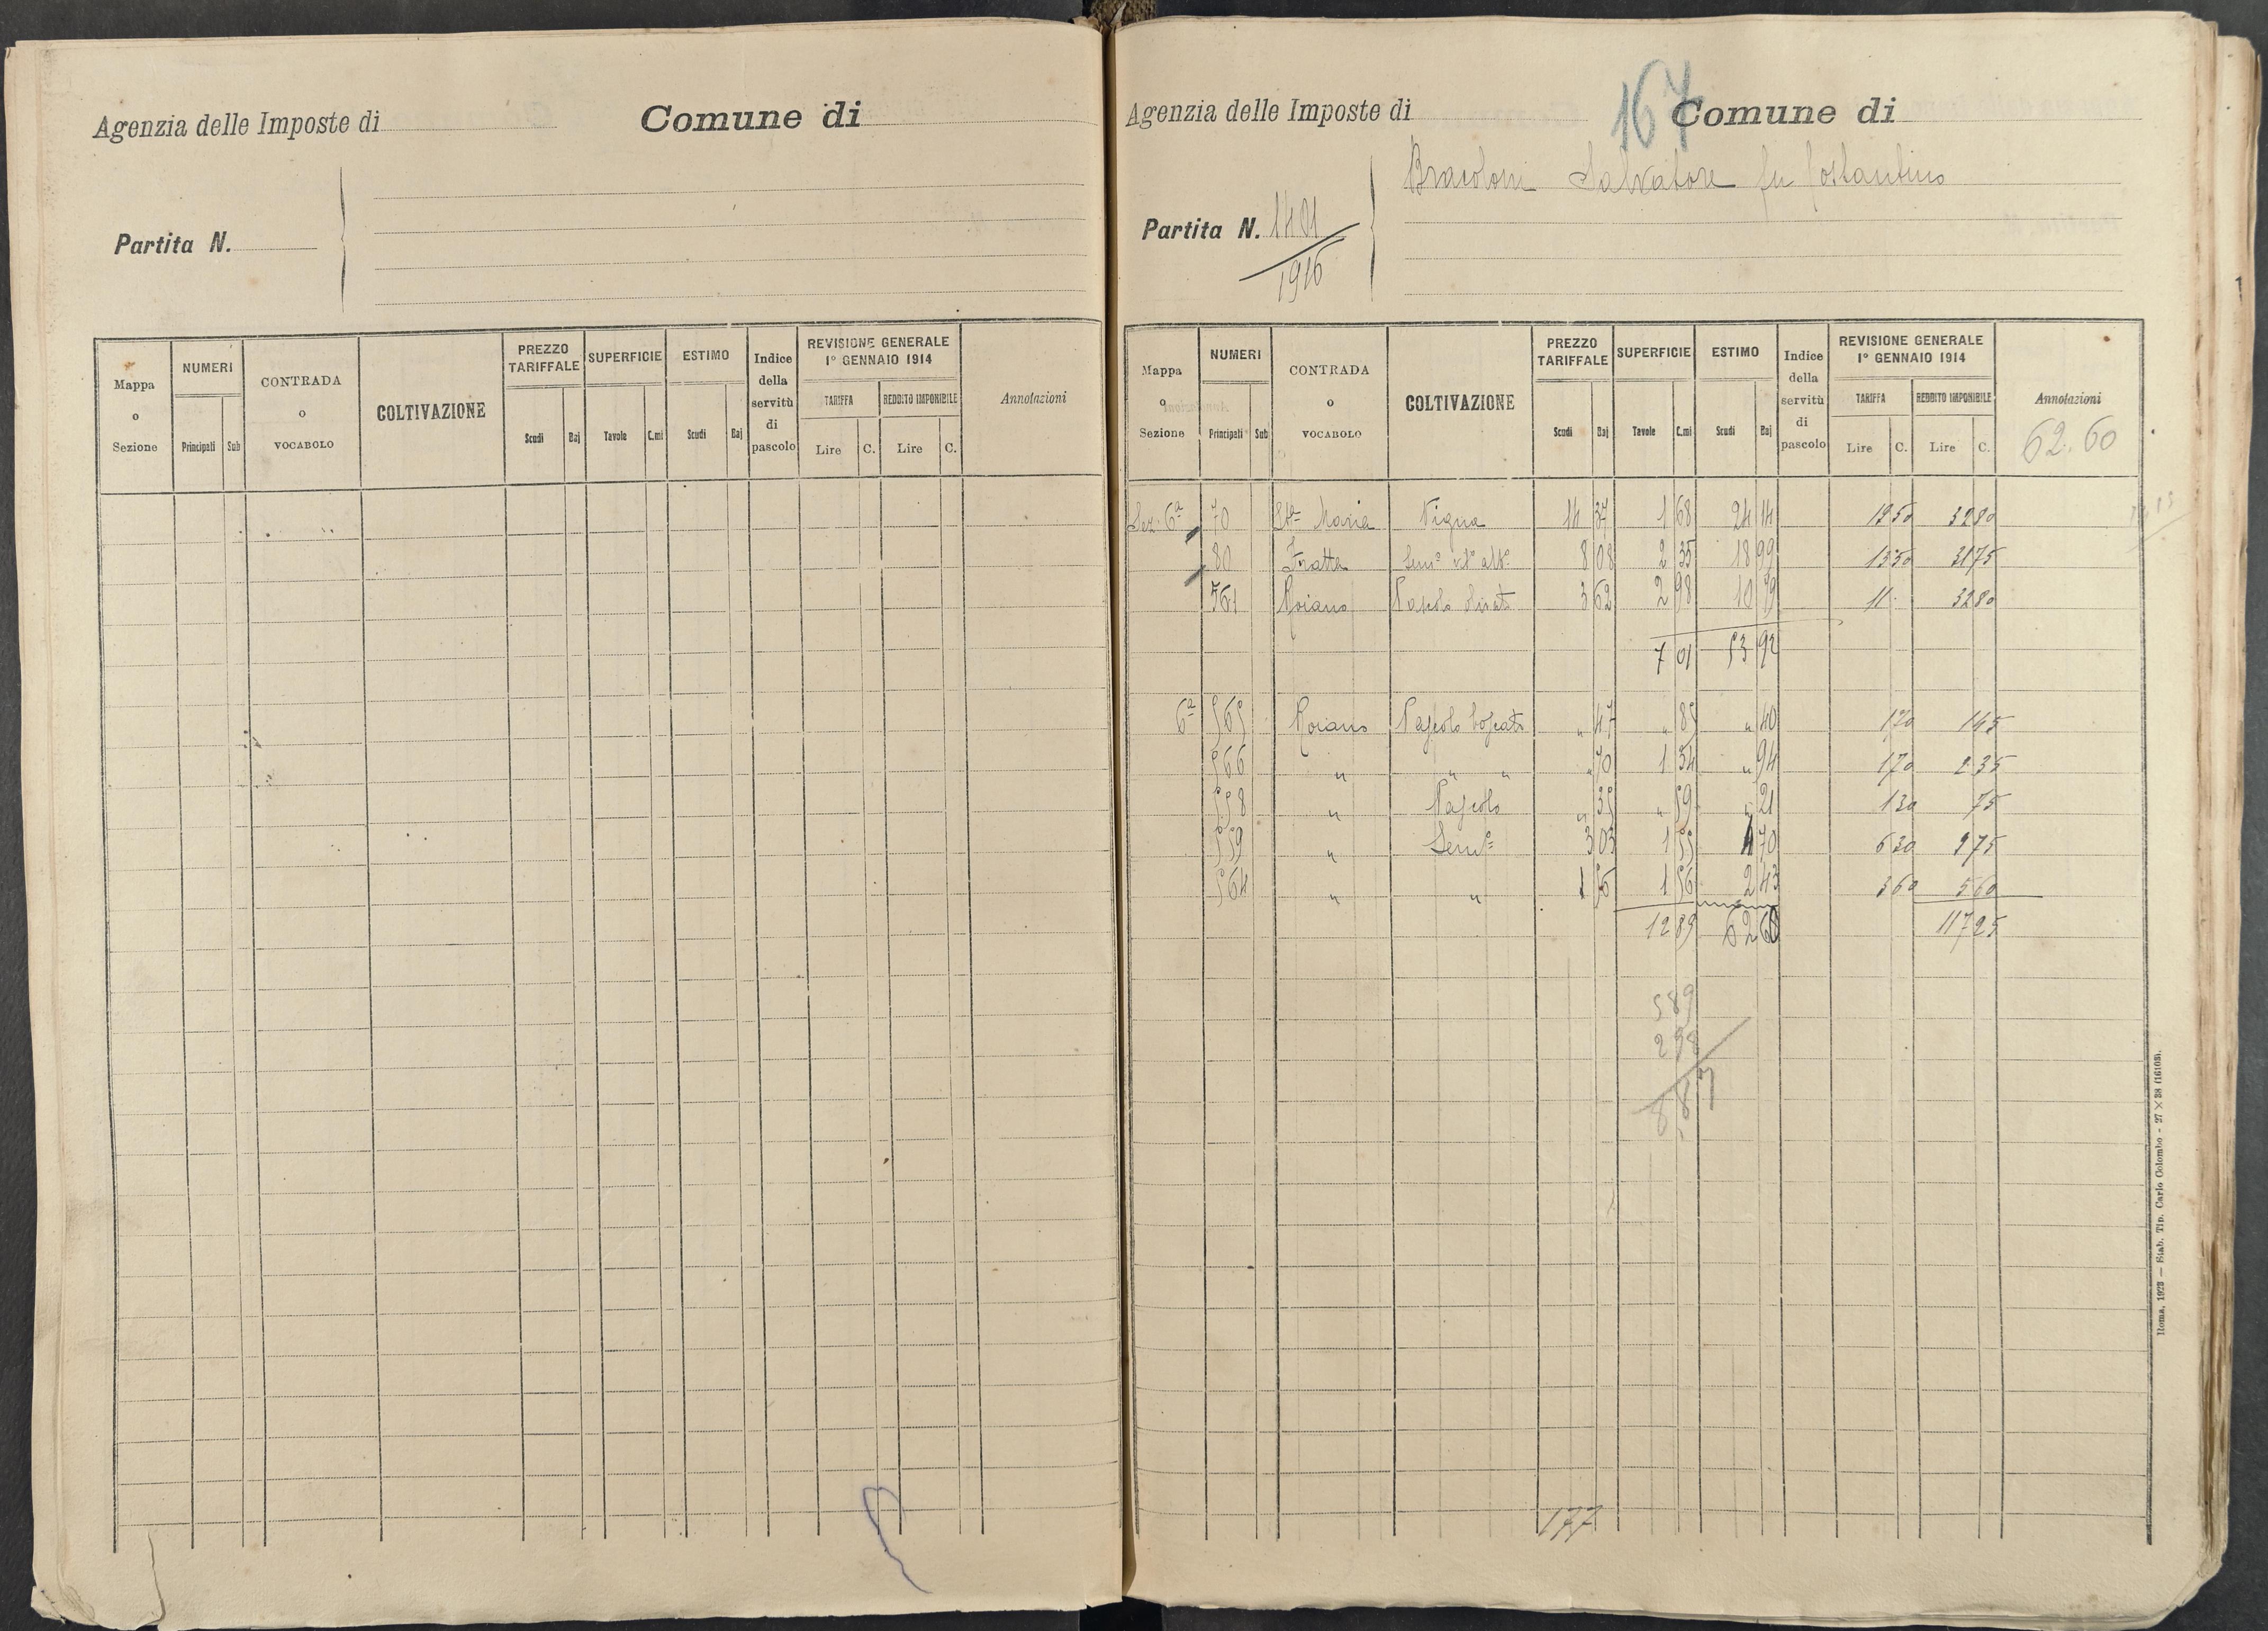 Agenzia delle Imposte di Comune di
Partita N.
Mappa o Sezione
NUMERI
Principali Sub
CONTRADA o VOCABOLO
COLTIVAZIONE
PREZZO TARIFFALE
Scudi Baj
SUPERFICIE
Tavole C.mi
ESTIMO
Scudi Baj
Indice della servitù di pascolo
REVISIONE GENERALE
1° GENNAIO 1914
TARIFFA REDDITO IMPONIBILE
Lire C. Lire C.
Annotazioni
167
Agenzia delle Imposte di Comune di
Salvatore fu Costantino
Partita N.
1916
Mappa o Sezione
NUMERI
Principali Sub
CONTRADA o VOCABOLO
COLTIVAZIONE
PREZZO TARIFFALE
Scudi Baj
SUPERFICIE
Tavole C.mi
ESTIMO
Scudi Baj
Indice della servitù di pascolo
REVISIONE GENERALE
1° GENNAIO 1914
TARIFFA REDDITO IMPONIBILE
Lire C. Lire C.
Annotazioni
62.60
Sez. 6ª 70 Sta Maria Vigna 14 37 1 68 24 14 19 50 32 80
80 Fratta Sem° vt° alb° 8 08 2 35 18 99 13 50 31 75
561 Roiano Pascolo 3 62 2 98 10 79 11 32 80
7 01 53 92
6ª 565 Roiano Pascolo boscato " 47 " 85 " 40 1 70 1 45
566 " " " " 70 1 34 " 94 1 70 2 35
558 " Pascolo " 35 " 59 " 21 1 30 75
559 " Sem° 3 03 1 55 4 70 6 30 9 75
564 " " 1 56 1 56 2 43 3 60 5 60
12 89 62 60 117 25
589
298
887
177
Roma, 1923 — Stab. Tip. Carlo Colombo - 27 × 38 (16103).